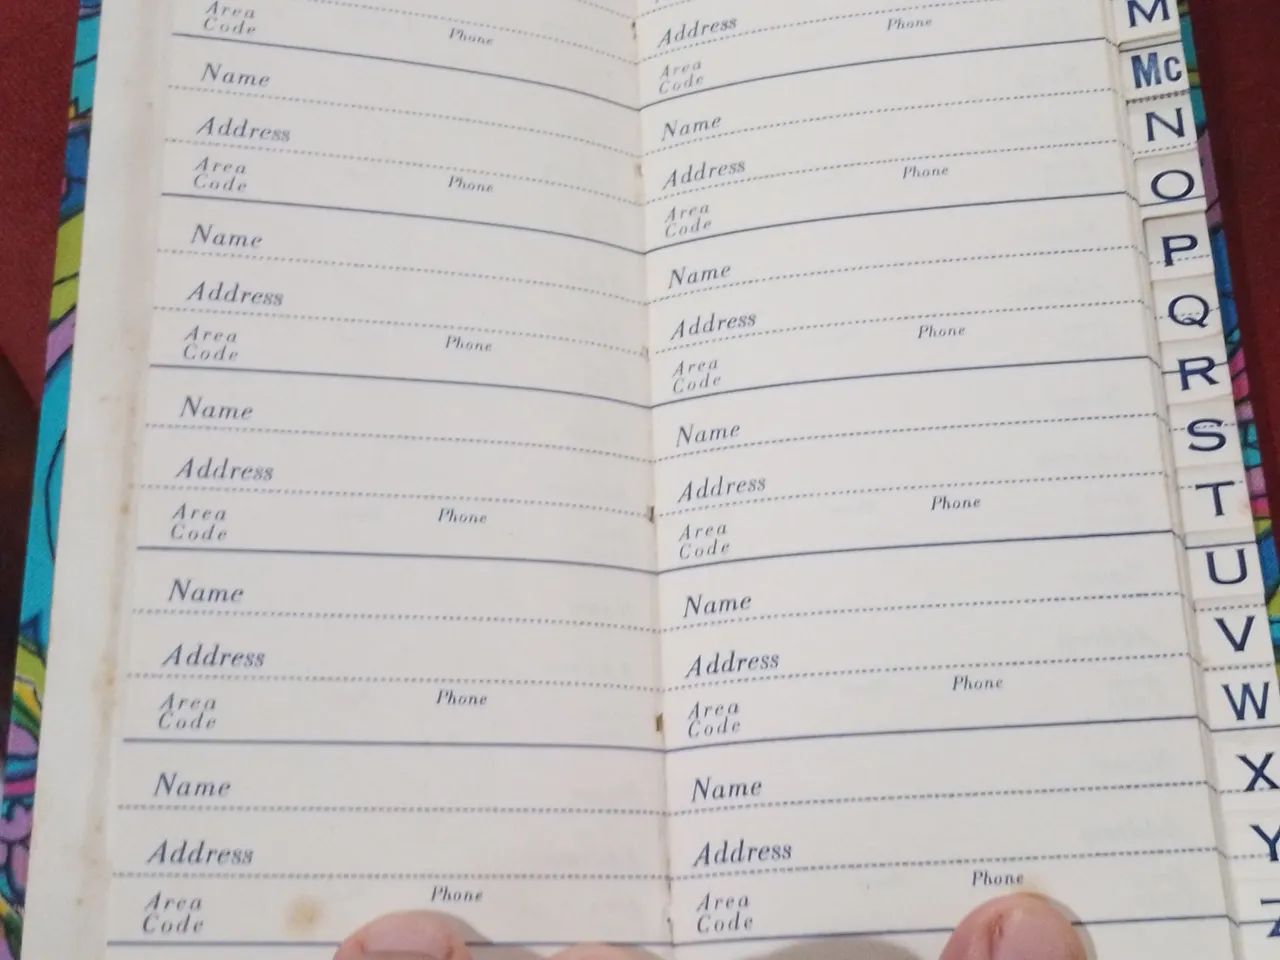 Area
Code Phone
Name
Address
Area
Code Phone
Name
Address
Area
Code Phone
Name
Address
Area
Code Phone
Name
Address
Area
Code Phone
Name
Address
Area
Code Phone
Address Phone
Area
Code
Name
Address Phone
Area
Code
Name
Address Phone
Area
Code
Name
Address Phone
Area
Code
Name
Address Phone
Area
Code
Name
Address Phone
Area
Code
M
Mc
N
O
P
Q
R
S
T
U
V
W
X
Y
Z